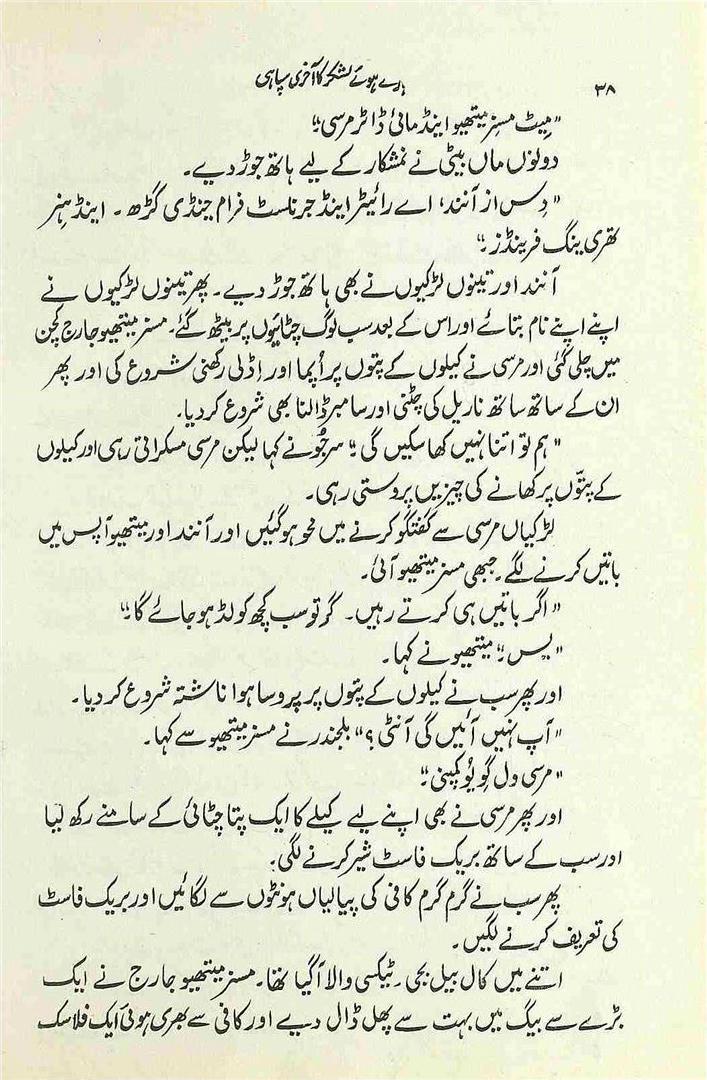 ۳۸
ہارے ہوئے لشکر کا آخری سپاہی
"مِیٹ مسز میتھیو اینڈ مائی ڈاٹر مرسی۔"
دونوں ماں بیٹی نے نمشکار کے لیے ہاتھ جوڑ دیے۔
"دِس از آنند، اے رائیٹر اینڈ جرنلسٹ فرام چنڈی گڑھ ۔ اینڈ ہِنر
تھری ینگ فرینڈز۔"
آنند اور تینوں لڑکیوں نے بھی ہاتھ جوڑ دیے۔ پھر تینوں لڑکیوں نے
اپنے اپنے نام بتائے اور اس کے بعد سب لوگ چٹائیوں پر بیٹھ گئے۔ مسز میتھیو جارج کچن
میں چلی گئی اور مرسی نے کیلوں کے پتوں پر اُپما اور اِڈلی رکھنی شروع کی اور پھر
ان کے ساتھ ساتھ ناریل کی چٹنی اور سامبر ڈالنا بھی شروع کر دیا۔
"ہم تو اتنا نہیں کھا سکیں گی۔" سرجُو نے کہا لیکن مرسی مسکراتی رہی اور کیلوں
کے پتّوں پر کھانے کی چیزیں پروستی رہی۔
لڑکیاں مرسی سے گفتگو کرنے میں محو ہو گئیں اور آنند اور میتھیو آپس میں
باتیں کرنے لگے۔ جبھی مسز میتھیو آئی۔
"اگر باتیں ہی کرتے رہیں۔ گر تو سب کچھ کولڈ ہو جائے گا۔"
"یس۔" میتھیو نے کہا۔
اور پھر سب نے کیلوں کے پتوں پر پروسا ہوا ناشتہ شروع کر دیا۔
"آپ نہیں آئیں گی آنٹی؟" بلجندر نے مسز میتھیو سے کہا۔
"مرسی وِل گِو یُو کمپنی۔"
اور پھر مرسی نے بھی اپنے لیے کیلے کا ایک پتا چٹائی کے سامنے رکھ لیا
اور سب کے ساتھ بریک فاسٹ شیر کرنے لگی۔
پھر سب نے گرم گرم کافی کی پیالیاں ہونٹوں سے لگائیں اور بریک فاسٹ
کی تعریف کرنے لگیں۔
اتنے میں کال بیل بجی۔ ٹیکسی والا آ گیا تھا۔ مسز میتھیو جارج نے ایک
بڑے سے بیگ میں بہت سے پھل ڈال دیے اور کافی سے بھری ہوئی ایک فلاسک